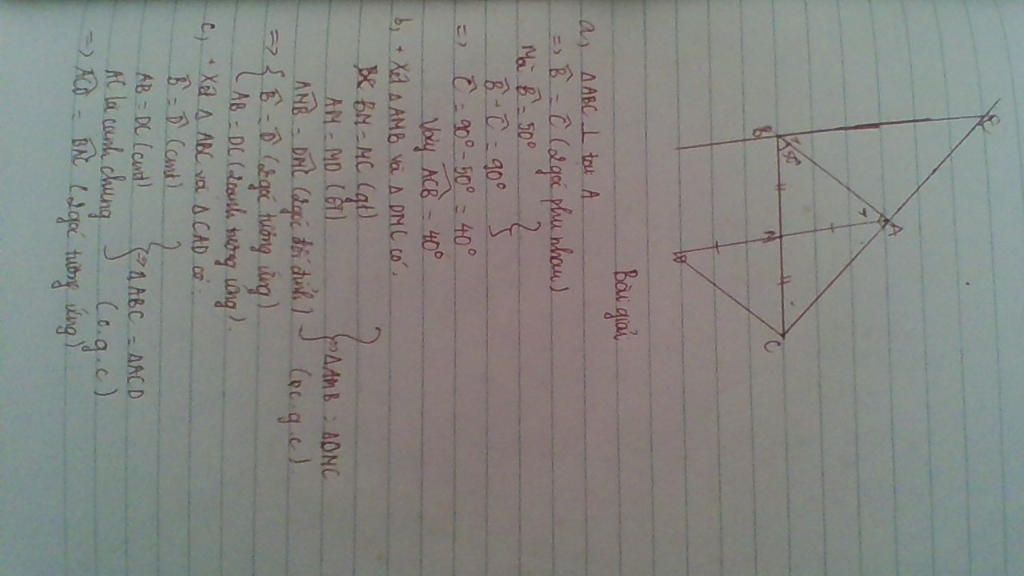 B
50°
M
A
D
C
Bài giải
a, ΔABC ⊥ tại A
=> B̂ = Ĉ (2 góc phụ nhau)
Mà B̂ = 50°
B̂ + Ĉ = 90°
=> Ĉ = 90° - 50° = 40°
Vậy ACB = 40°
b, + Xét ΔAMB và ΔDMC có:
BM = MC (gt)
AM = MD (gt)
AMB = DMC (2 góc đối đỉnh) => ΔAMB = ΔDMC (c.g.c)
=> { B̂ = D̂ (2 góc tương ứng)
AB = DC (2 cạnh tương ứng).
c, + Xét ΔABC và ΔCAD có:
B̂ = D̂ (cmt)
AB = DC (cmt)
AC là cạnh chung => ΔABC = ΔACD (c.g.c)
=> ACD = BAC (2 góc tương ứng)